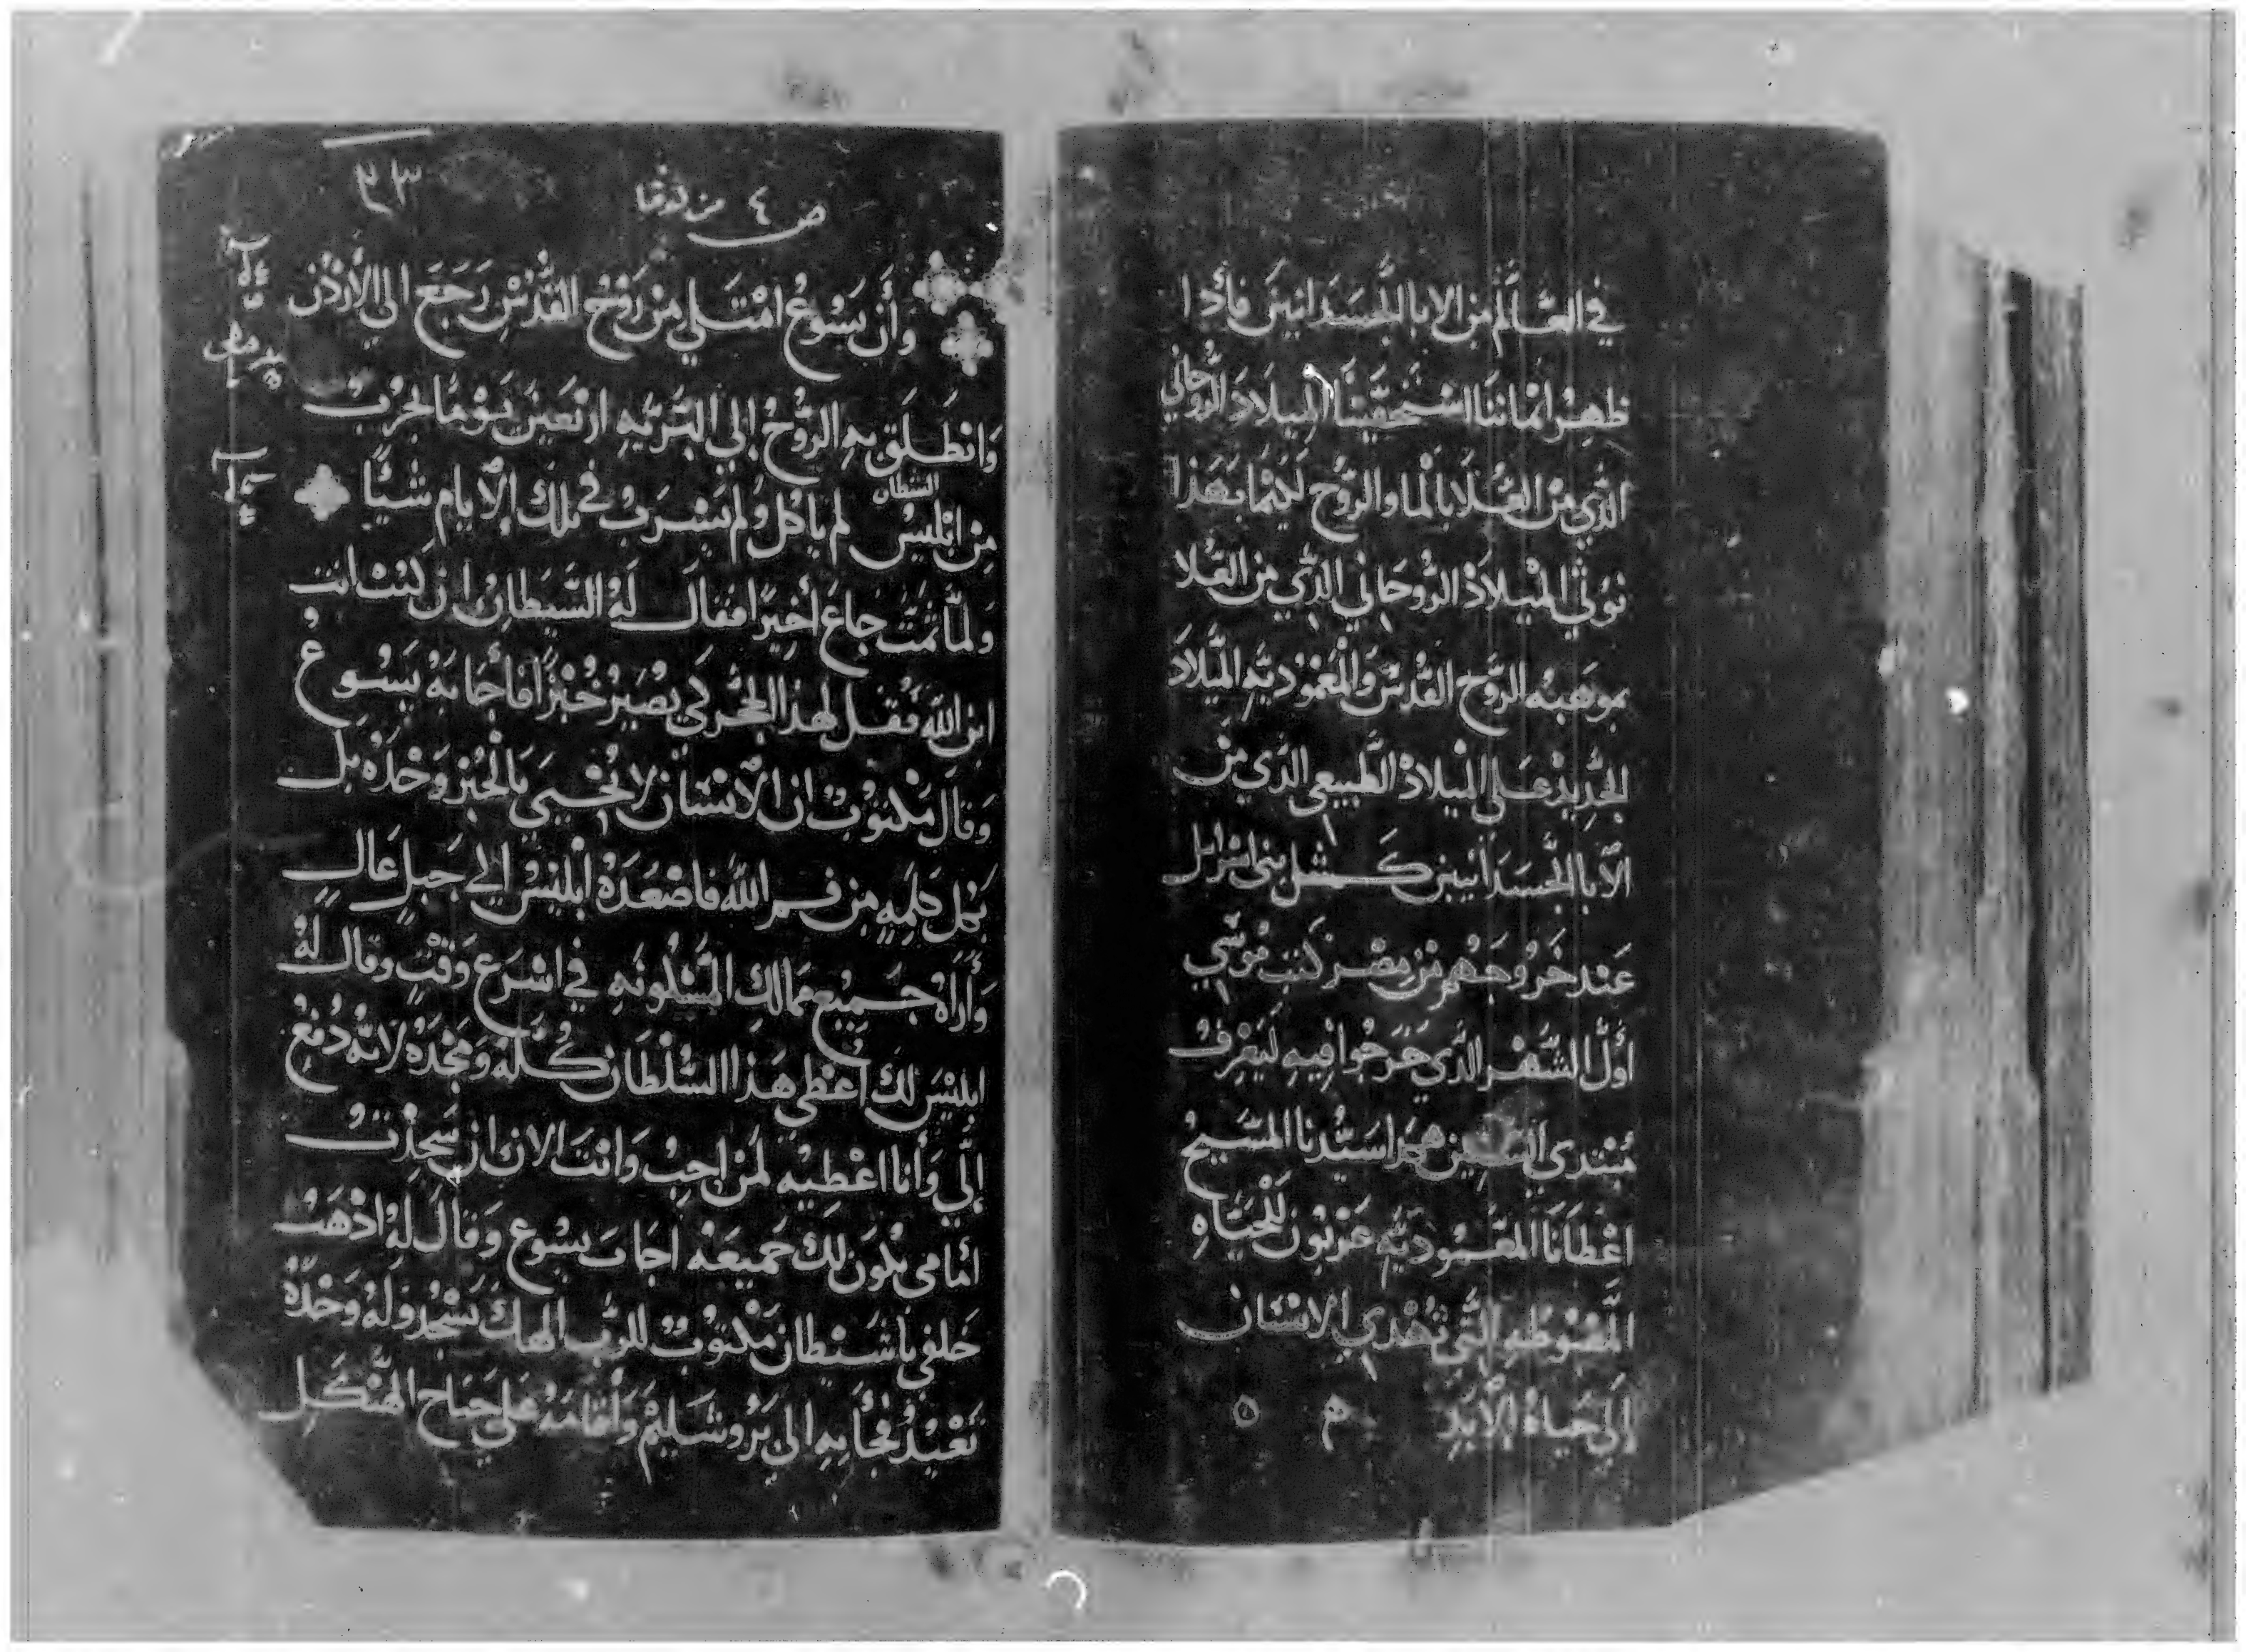 في العالم من الابا الجسدانيين فأذا
ظهر ايماننا استحقينا الميلاد الروحاني
الذي من العُلا بالما والروح لكيما بهذا
نوفي الميلاد الروحاني الذي من العُلا
بموهبه الروح القدس والمعموديه الميلاد
الجديد على الميلاد الطبيعي الذي من
الآبا الجسدانيين كمثل بني اسرايل
عند خروجهم من مصر كتب موسي
اول الشهر الذي خرجوا فيه ليعرف
مبتدي السنين هكذا سيدنا المسيح
اعطانا المعموديه عربون للحياه
المغبوطه التي تهدي الانسان
إلى حياه الأبد
ص ٤ من لوقا
٣٣
وأن يسوعُ امتلي من رَوح القُدس رَجَع الي الأردن
وَانطلق به الروُح إلي البَرّيّه اربَعين يَومًا يجرب
الشيطان
مِن ابليسْ لم ياكل ولم يشرب في تلك الأيام شيًّا
وَلمّا تمّت جاعَ أخيرًا فقال لهُ الشيطان ان كنت انت
ابن الله فقل لهذا الحجر كي يصير خبزًا فأجابهُ يسُوعُ
وقال مكتوبٌ ان الأنسَان لا يحيي بالخبز وَحْدَهُ بل
بكل كلمِهٍ من فم الله فاصْعَدهُ ابليسْ إلي جبلٍ عالٍ
وَأراهُ جميع ممالك المسكونَه في اسرَع وَقتٍ وقال لهُ
ابليسَ لك أعطي هَذا السُلطان كُلّهُ وَمجْدهُ لانّه دُفع
إليّ وَأنا اعْطيْه لمن احِبْ وَانت الان ان سَجدتْ
أمامي يكون لك جميعَهْ اجَاب يسُوع وَقالَ لهُ اذْهَب
خلفي ياشيطان مكتوبٌ للرب الهك تسْجُد ولهُ وَحْدَهُ
تعْبُدْ فجأ به الي يروشليمْ وَأقامَهُ عَلي جناح الهيكل